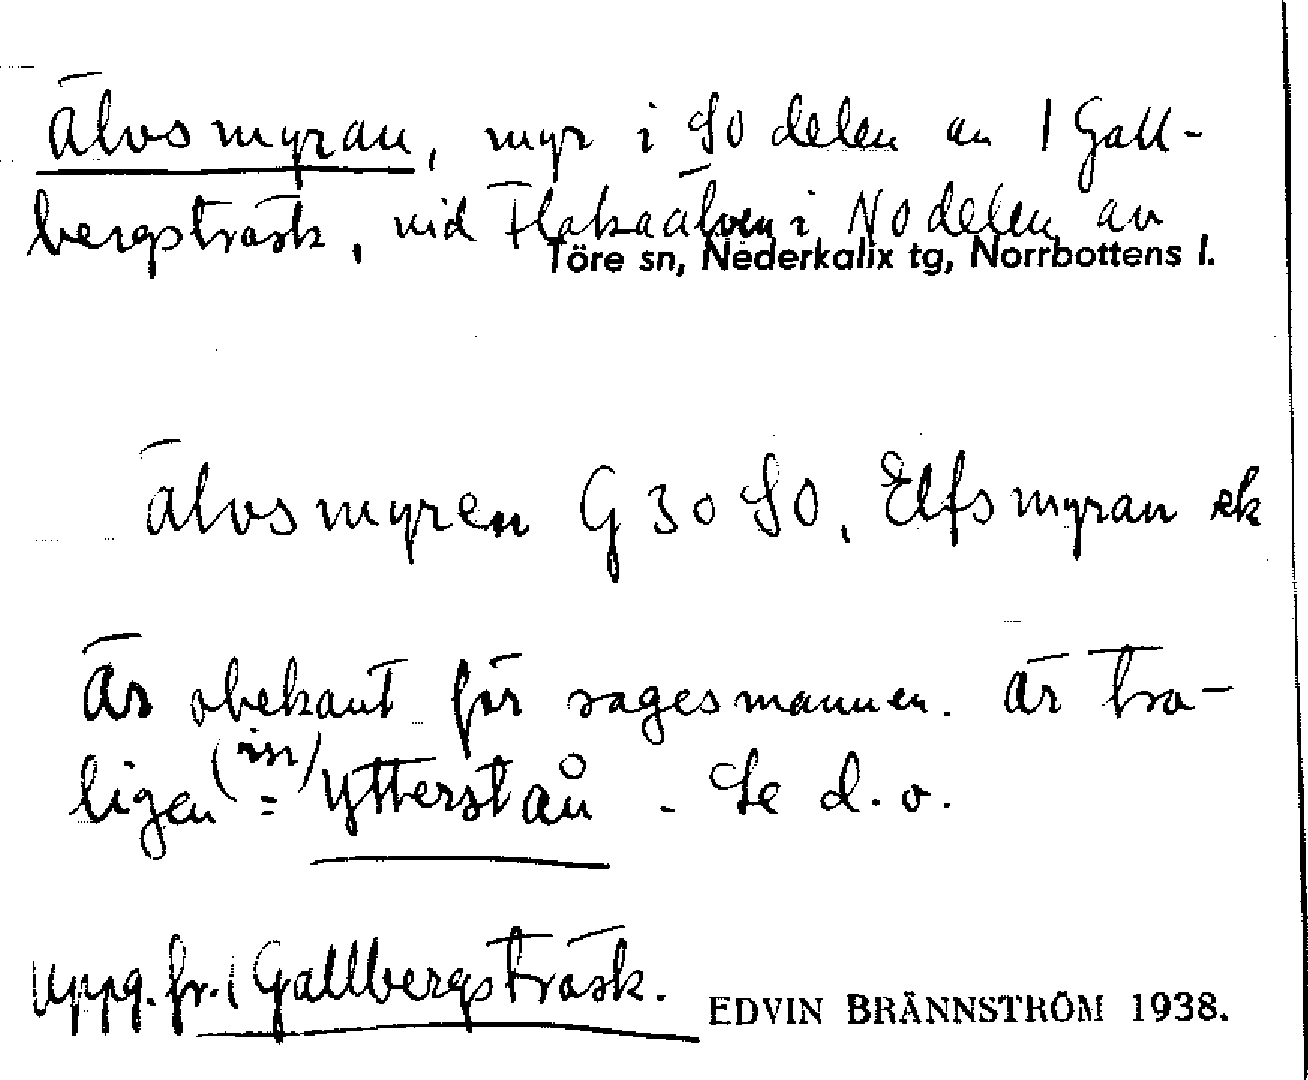 Älvsmyran, myr i SO delen av 1 Gall-
bergsträsk, vid Flakaälven i NO delen av
Töre sn, Nederkalix tg, Norrbottens l.
Älvsmyren G 30 SO, Elfsmyran ek
Är obekant för sagesmannen. Är tro-
ligen = Ytterstån. Se d. o.
Uppg. fr. 1 Gallbergsträsk.
EDVIN BRÄNNSTRÖM 1938.